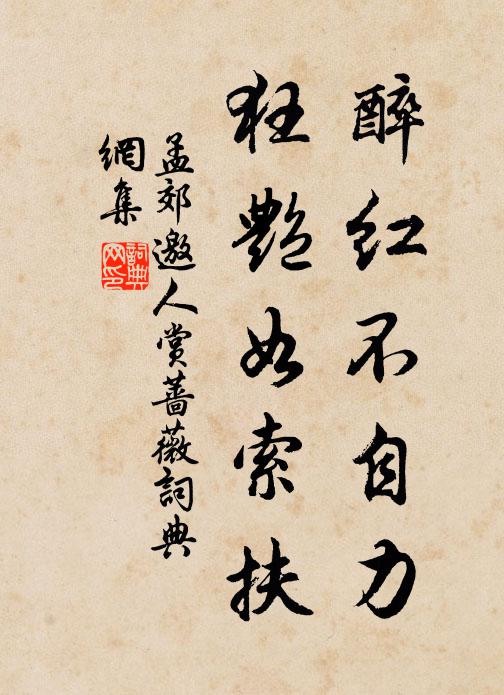 醉红不自力
狂艷如索扶
孟郊邀人赏蔷薇词典
網集
詞典
网印